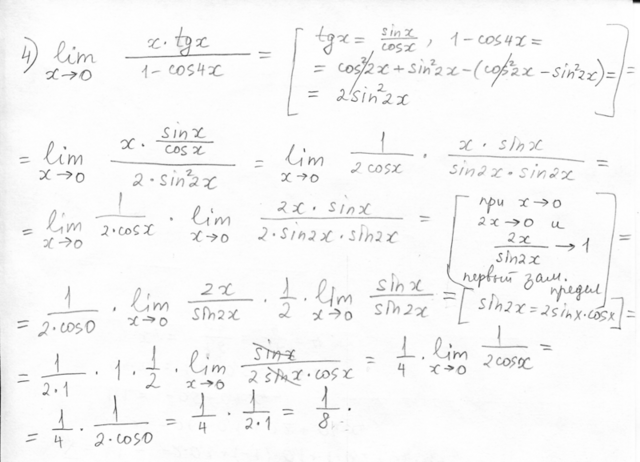 4) lim x→0 (x · tgx)/(1 − cos4x) = [ tgx = sinx/cosx , 1 − cos4x =
= cos²2x + sin²2x − (cos²2x − sin²2x) =
= 2sin²2x ] =
= lim x→0 (x · sinx/cosx)/(2 · sin²2x) = lim x→0 1/(2cosx) · (x · sinx)/(sin2x · sin2x) =
= lim x→0 1/(2·cosx) · lim x→0 (2x · sinx)/(2 · sin2x · sin2x) = [ при x→0
2x→0 и
2x/sin2x → 1
первый зам.
предел ] =
= 1/(2·cos0) · lim x→0 2x/sin2x · 1/2 · lim x→0 sinx/sin2x = [ sin2x = 2sinx·cosx ] =
= 1/(2·1) · 1 · 1/2 · lim x→0 sinx/(2sinx · cosx) = 1/4 · lim x→0 1/(2cosx) =
= 1/4 · 1/(2·cos0) = 1/4 · 1/(2·1) = 1/8 .